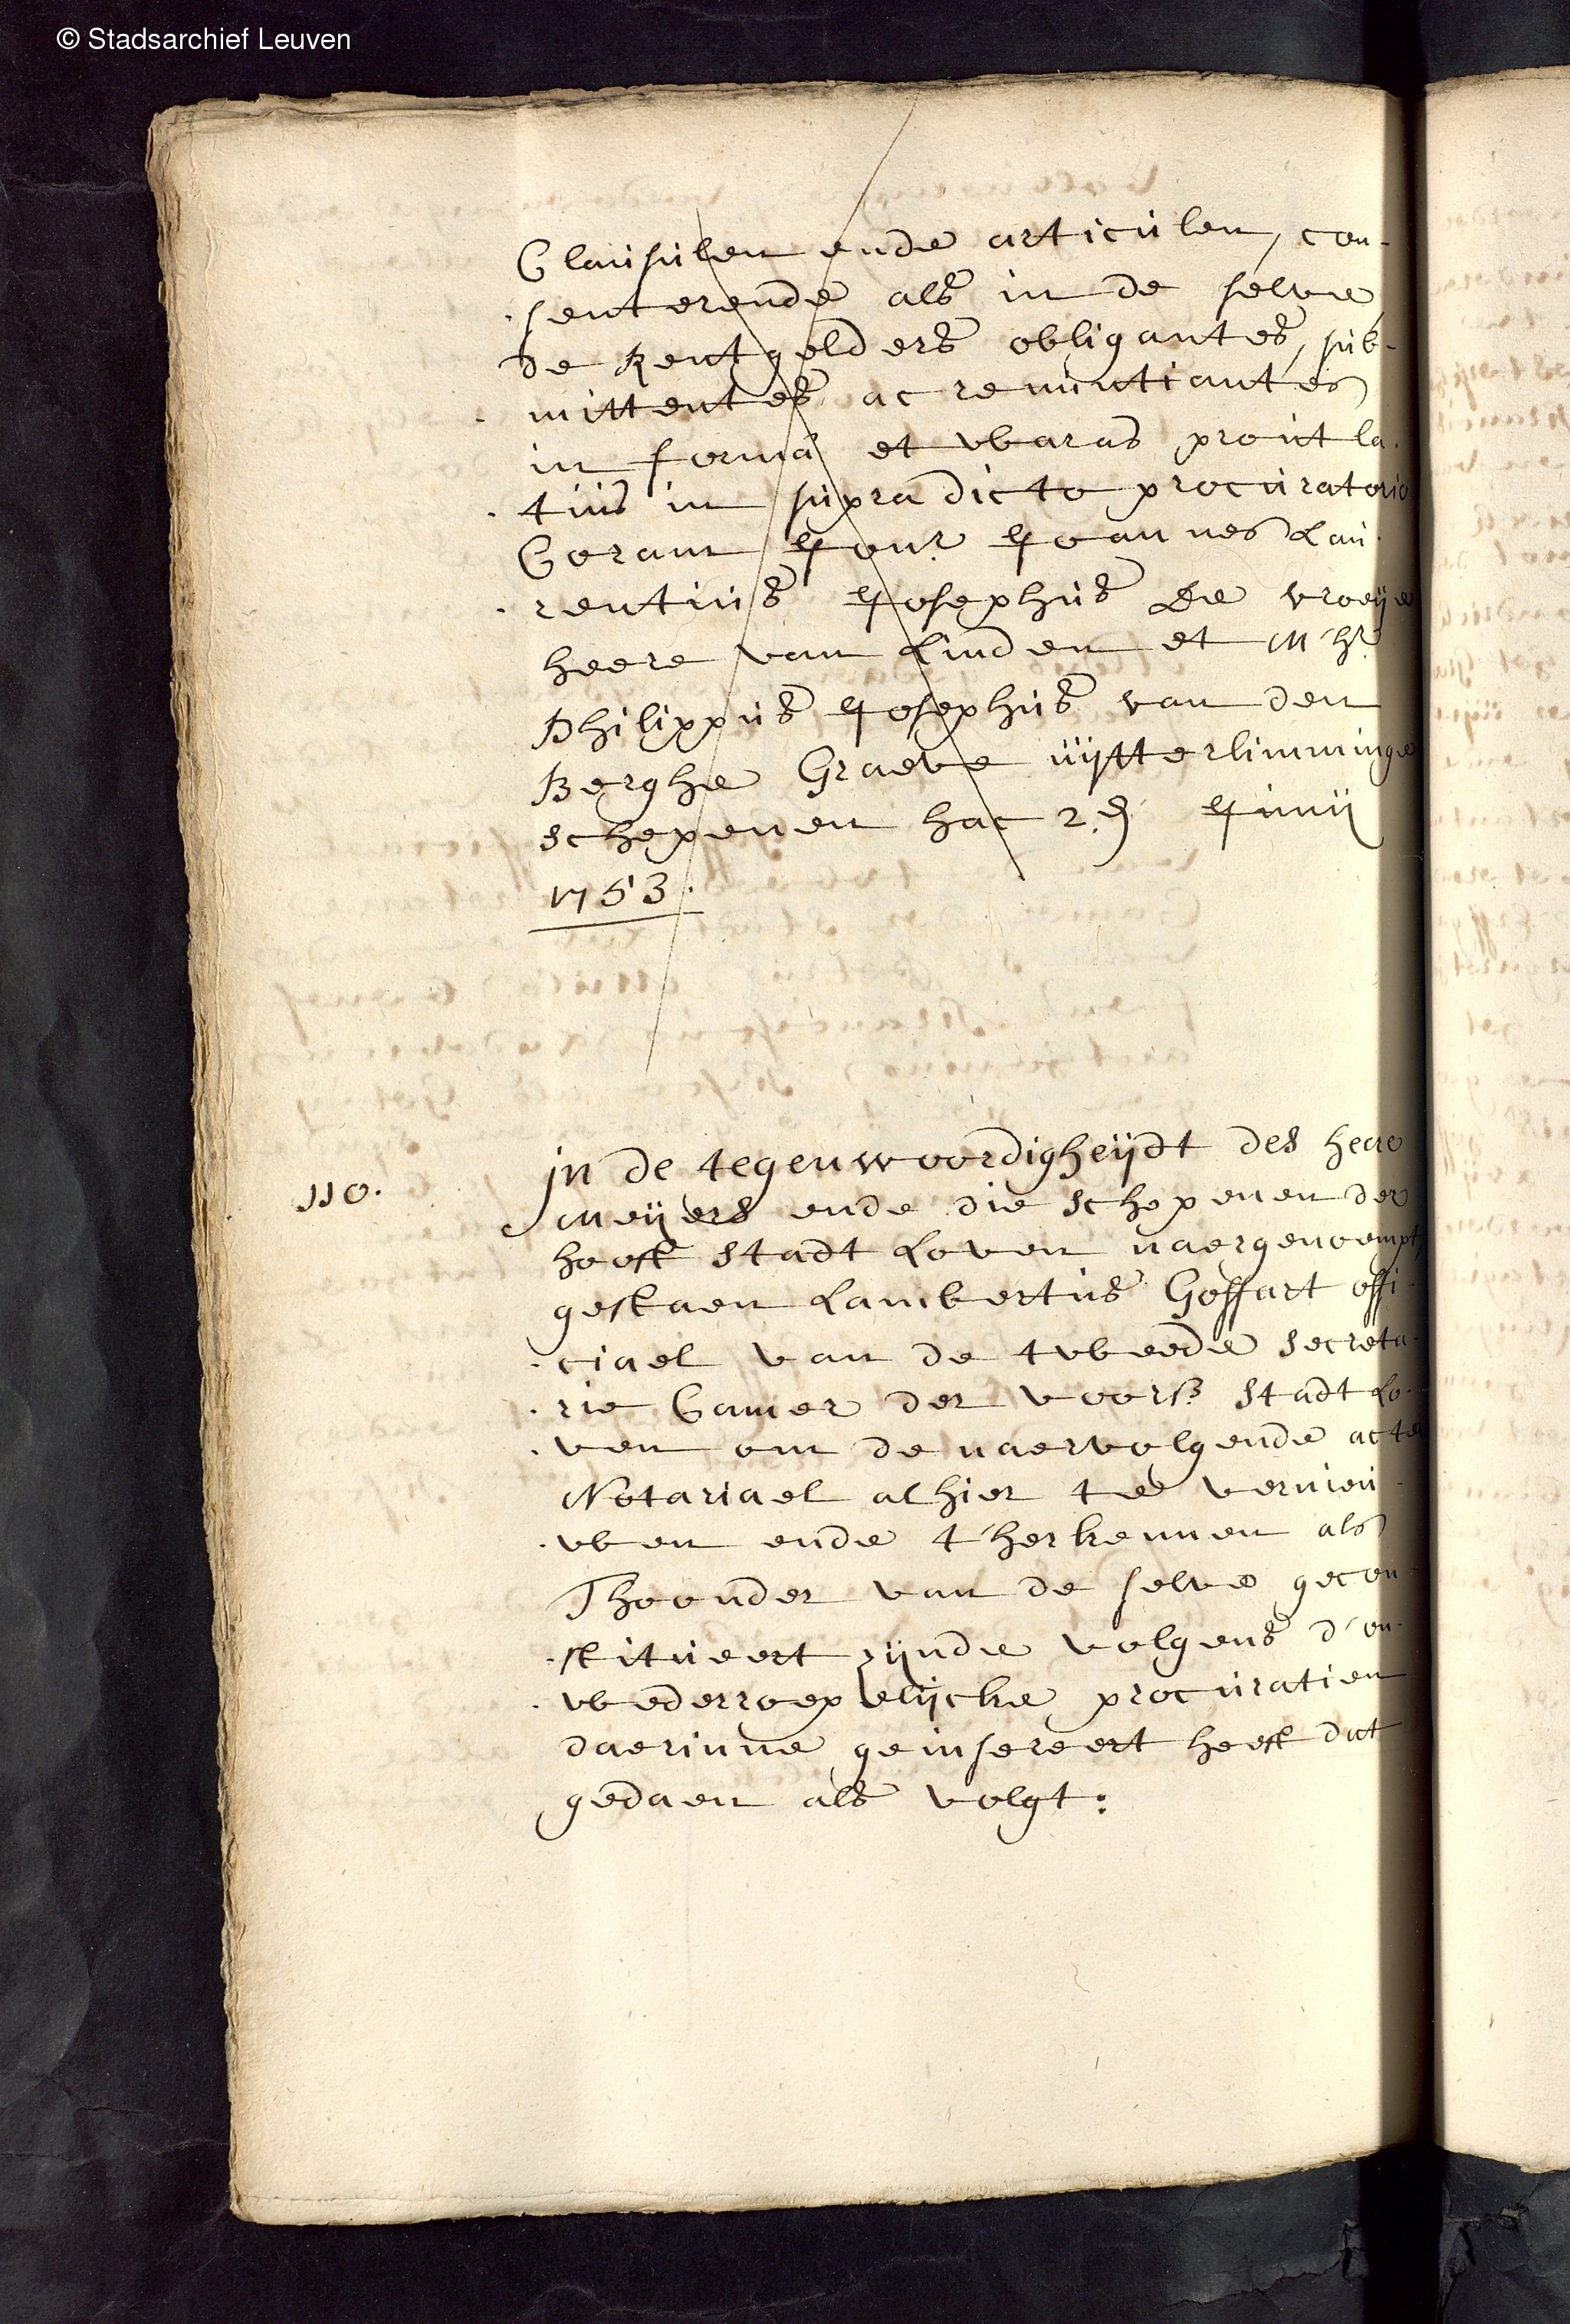 © Stadsarchief Leuven
Clausulen ende articulen, con-
senterende als in de selve
de Rentgelders obligantes, sub-
mittentes ac renuntiantes
in formâ et waras prout la-
tius in supradicto procuratorio
Coram Jonr Joannes Lau-
rentius Josephus De Vroeye
heere van Linden et M'hr
Philippus Josephus van den
Berghe Graeve uÿtterlimminge
schepenen hac 2.a Junÿ
1753.
110.
in de tegenwoordigheÿdt des heere
Meÿers ende die schepenen der
hooft stadt Loven naergenoempt,
gestaen Lambertus Goffart offi-
ciael van de tweede secreta-
rie Camer der voors. stadt Lo-
ven om de naervolgende acte
Notariael alhier te vernieu-
wen ende t'herkennen als
Thoonder van de selve gecon-
stitueert zÿnde volgens d'on-
wederroepelÿcke procuratien
daerinne geinsereert heeft dat
gedaen als volgt: